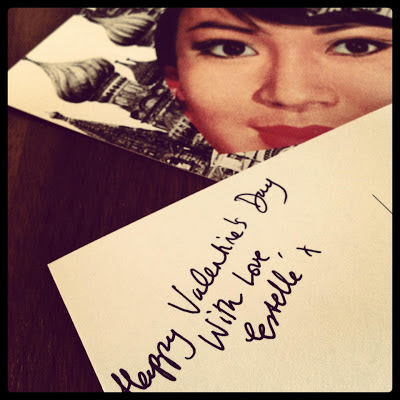 Happy Valentine's Day
With Love,
Estelle x